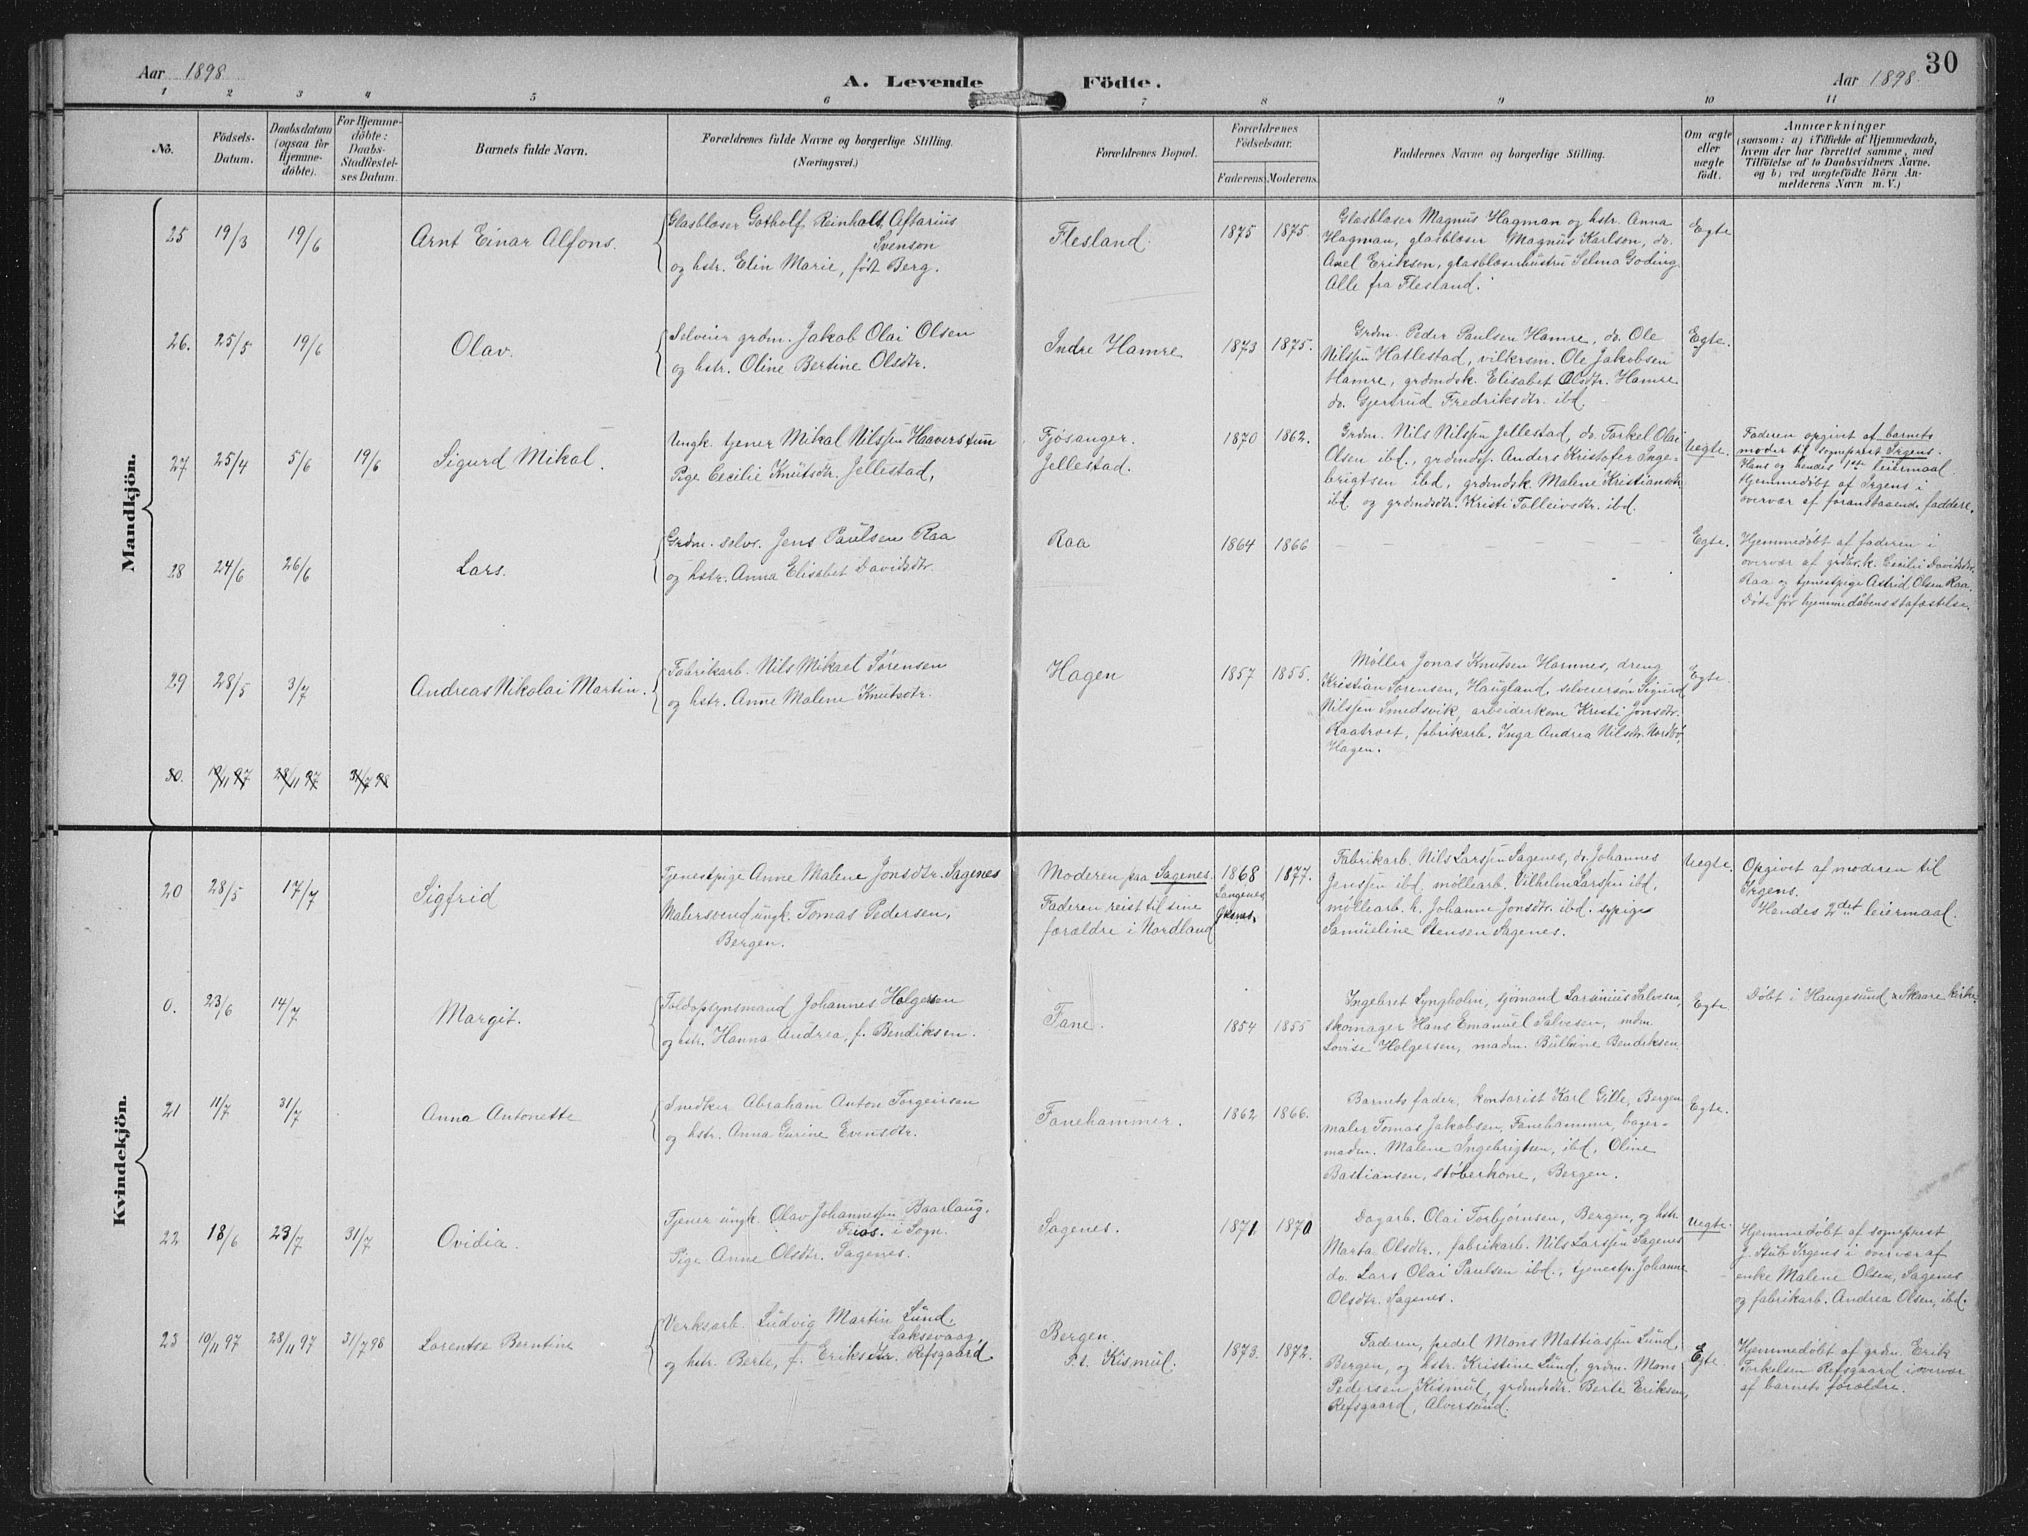 Aar 1898
A. Levende Födte.
Aar 1898.
30
1 2 3 4 5 6 7 8 9 10 11
No.
Födsels-
Datum.
Daabsdatum
(ogsaa for
Hjemme-
döbte).
For Hjemme-
döbte:
Daabs-
Stadfæstel-
ses Datum.
Barnets fulde Navn.
Forældrenes fulde Navne og borgerlige Stilling.
(Næringsvei.)
Forældrenes Bopæl.
Forældrenes
Födselsaar.
Faderens. Moderens.
Faddernes Navne og borgerlige Stilling.
Om ægte
eller
uægte
födt.
Anmærkninger
(saasom: a) i Tilfælde af Hjemmedaab,
hvem der har forrettet samme, med
Tilföielse af to Daabsvidners Navne.
og b) ved uægtefödte Börn An-
melderens Navn m. V.)
Mandkjön.
25 19/3 19/6
Arnt Einar Alfons.
Glasblæser Gotholf Reinholt Aftarius
Svenson
og hstr. Elin Marie, født Berg.
Flesland.
1875 1875.
Glasblæser Magnus Hagman og hstr. Anna
Hagman, glasblæser Magnus Karlson, do.
Axel Erikson, glasblæserhustru Selma Goding
Alle fra Flesland.
Egte
26. 25/5 19/6
Olav.
Selveier grdm. Jakob Olai Olsen
og hstr. Oline Bertine Olsdtr.
Indre Hamre
1873 1875.
Grdm. Peder Paulsen Hamre, do. Ole
Nilssen Hatlestad, vilkersm. Ole Jakobsen
Hamre, grdmdsk. Elisabet Olsdtr. Hamre
do. Gjertrud Fredriksdtr. ibd.
Egte.
27 25/4 5/6 19/6
Sigurd Mikal.
Ungk. tjener Mikal Nilssen Haaverstun
Pige Cecilie Knutsdtr. Jellestad,
Fjøsanger.
Jellestad.
1870 1862.
Grdm. Nils Nilssen Jellestad, do. Torkel Olai
Olsen ibd., grdmdsf. Anders Kristofer Inge-
brigtsen ibd, grdmdsk. Malene Kristiansdtr
ibd. og grdmdsdtr. Kristi Tolleivsdtr. ibd.
Uegte.
Faderen opgivet af barnets
moder til sogneprest Irgens.
Hans og hendes 1ste leiermaal
Hjemmedøbt af Irgens i
overvær af foranstaaende faddere.
28 24/6 26/6
Lars.
Grdm. selv. Jens Paulsen Raa
og hstr. Anna Elisabet Davidsdtr.
Raa
1864 1866
Egte.
Hjemmedøbt af faderen i
overvær af grdbr.k. Cecilie Davidsdtr.
Raa og tjenestpige Astrid Olsen Raa.
Døde før hjemmedåbens stafæstelse.
29 28/5 3/7
Andreas Nikolai Martin.
Fabrikarb. Nils Mikael Sørensen
og hstr. Anne Malene Knutsdtr.
Hagen
1857 1855.
Møller Jonas Knutsen Hamnes, dreng
Kristian Sørensen, Haugland, selveiersøn Sigurd
Nilssen Smedsvik, arbeiderkone Kristi Jonsdtr.
Raatræet, fabrikarb. Inga Andrea Nilsdtr. Nordbø,
Hagen.
Egte.
30. 19/11 97 28/11 97 31/7 98
Kvindekjön.
20 28/5 17/7
Sigfrid
Tjenestpige Anne Malene Jonsdtr. Sagenes
Malersvend ungk. Tomas Pedersen,
Bergen.
Moderen paa Sagenes.
Faderen reist til sine
forældre i Nordland
1868 1877.
Langenes
Øksnes.
Fabrikarb. Nils Larssen Sagenes, do. Johannes
Jenssen ibd. møllearb. Vilhelm Larssen ibd,
møllearb. k. Johanne Jonsdtr. ibd. sypige
Samueline Stensen Sagenes.
Uegte.
Opgivet af moderen til
Irgens.
Hendes 2det leiermaal.
0. 23/6 14/7
Margit.
Toldopsynsmand Johannes Holgersen
og hstr. Hanna Andrea, f. Bendiksen.
Fane.
1854 1855
Ingebret Lyngholm, sjømand Larsinius Salvesen,
skomager Hans Emanuel Salvesen, mdm.
Lovise Holgersen, madm. Bulline Bendiksen.
Egte
Døbt i Haugesund & Skaare kirke.
21 11/7 31/7
Anna Antonette
Snedker Abraham Anton Torgeirsen
og hstr. Anna Gurine Evensdtr.
Fanehammer.
1862 1866.
Barnets fader, kontorist Karl Gille, Bergen
maler Tomas Jakobsen, Fanehammer, bager-
madm. Malene Ingebrigtsen, ibd, Oline
Bastiansen, støberkone, Bergen.
Egte.
22 18/6 23/7 31/7
Ovidia.
Tjener ungk. Olav Johannessen Baarlaug,
Feios i Sogn.
Pige Anne Olsdtr. Sagenes.
Sagenes.
1871. 1870
Dagarb. Olai Torbjørnsen, Bergen, og hstr
Marta Olsdtr., fabrikarb. Nils Larssen Sagenes
do. Lars Olai Paulsen ibd., tjenestp. Johanne
Olsdtr. Sagenes.
Uegte.
Hjemmedøbt af sogneprest
J. Stub Irgens i overvær af
enke Malene Olsen, Sagenes
og fabrikarb. Andrea Olsen, ibd.
23 19/11 97 28/11 97 31/7 98
Lorentse Berntine
Verksarb. Ludvig Martin Lund,
Laksevaag,
og hstr. Berte, f. Eriksdtr. Refsgaard
Bergen.
P.t. Kismul.
1873. 1872.
Faderen, pedel Mons Mattiassen Lund,
Bergen, og hstr. Kristine Lund, grdm. Mons
Pedersen, Kismul, grdmdsdtr. Berte Eriksen,
Refsgaard, Alversund.
Egte.
Hjemmedøbt af grdm. Erik
Torkelsen Refsgaard i overvær
af barnets forældre.